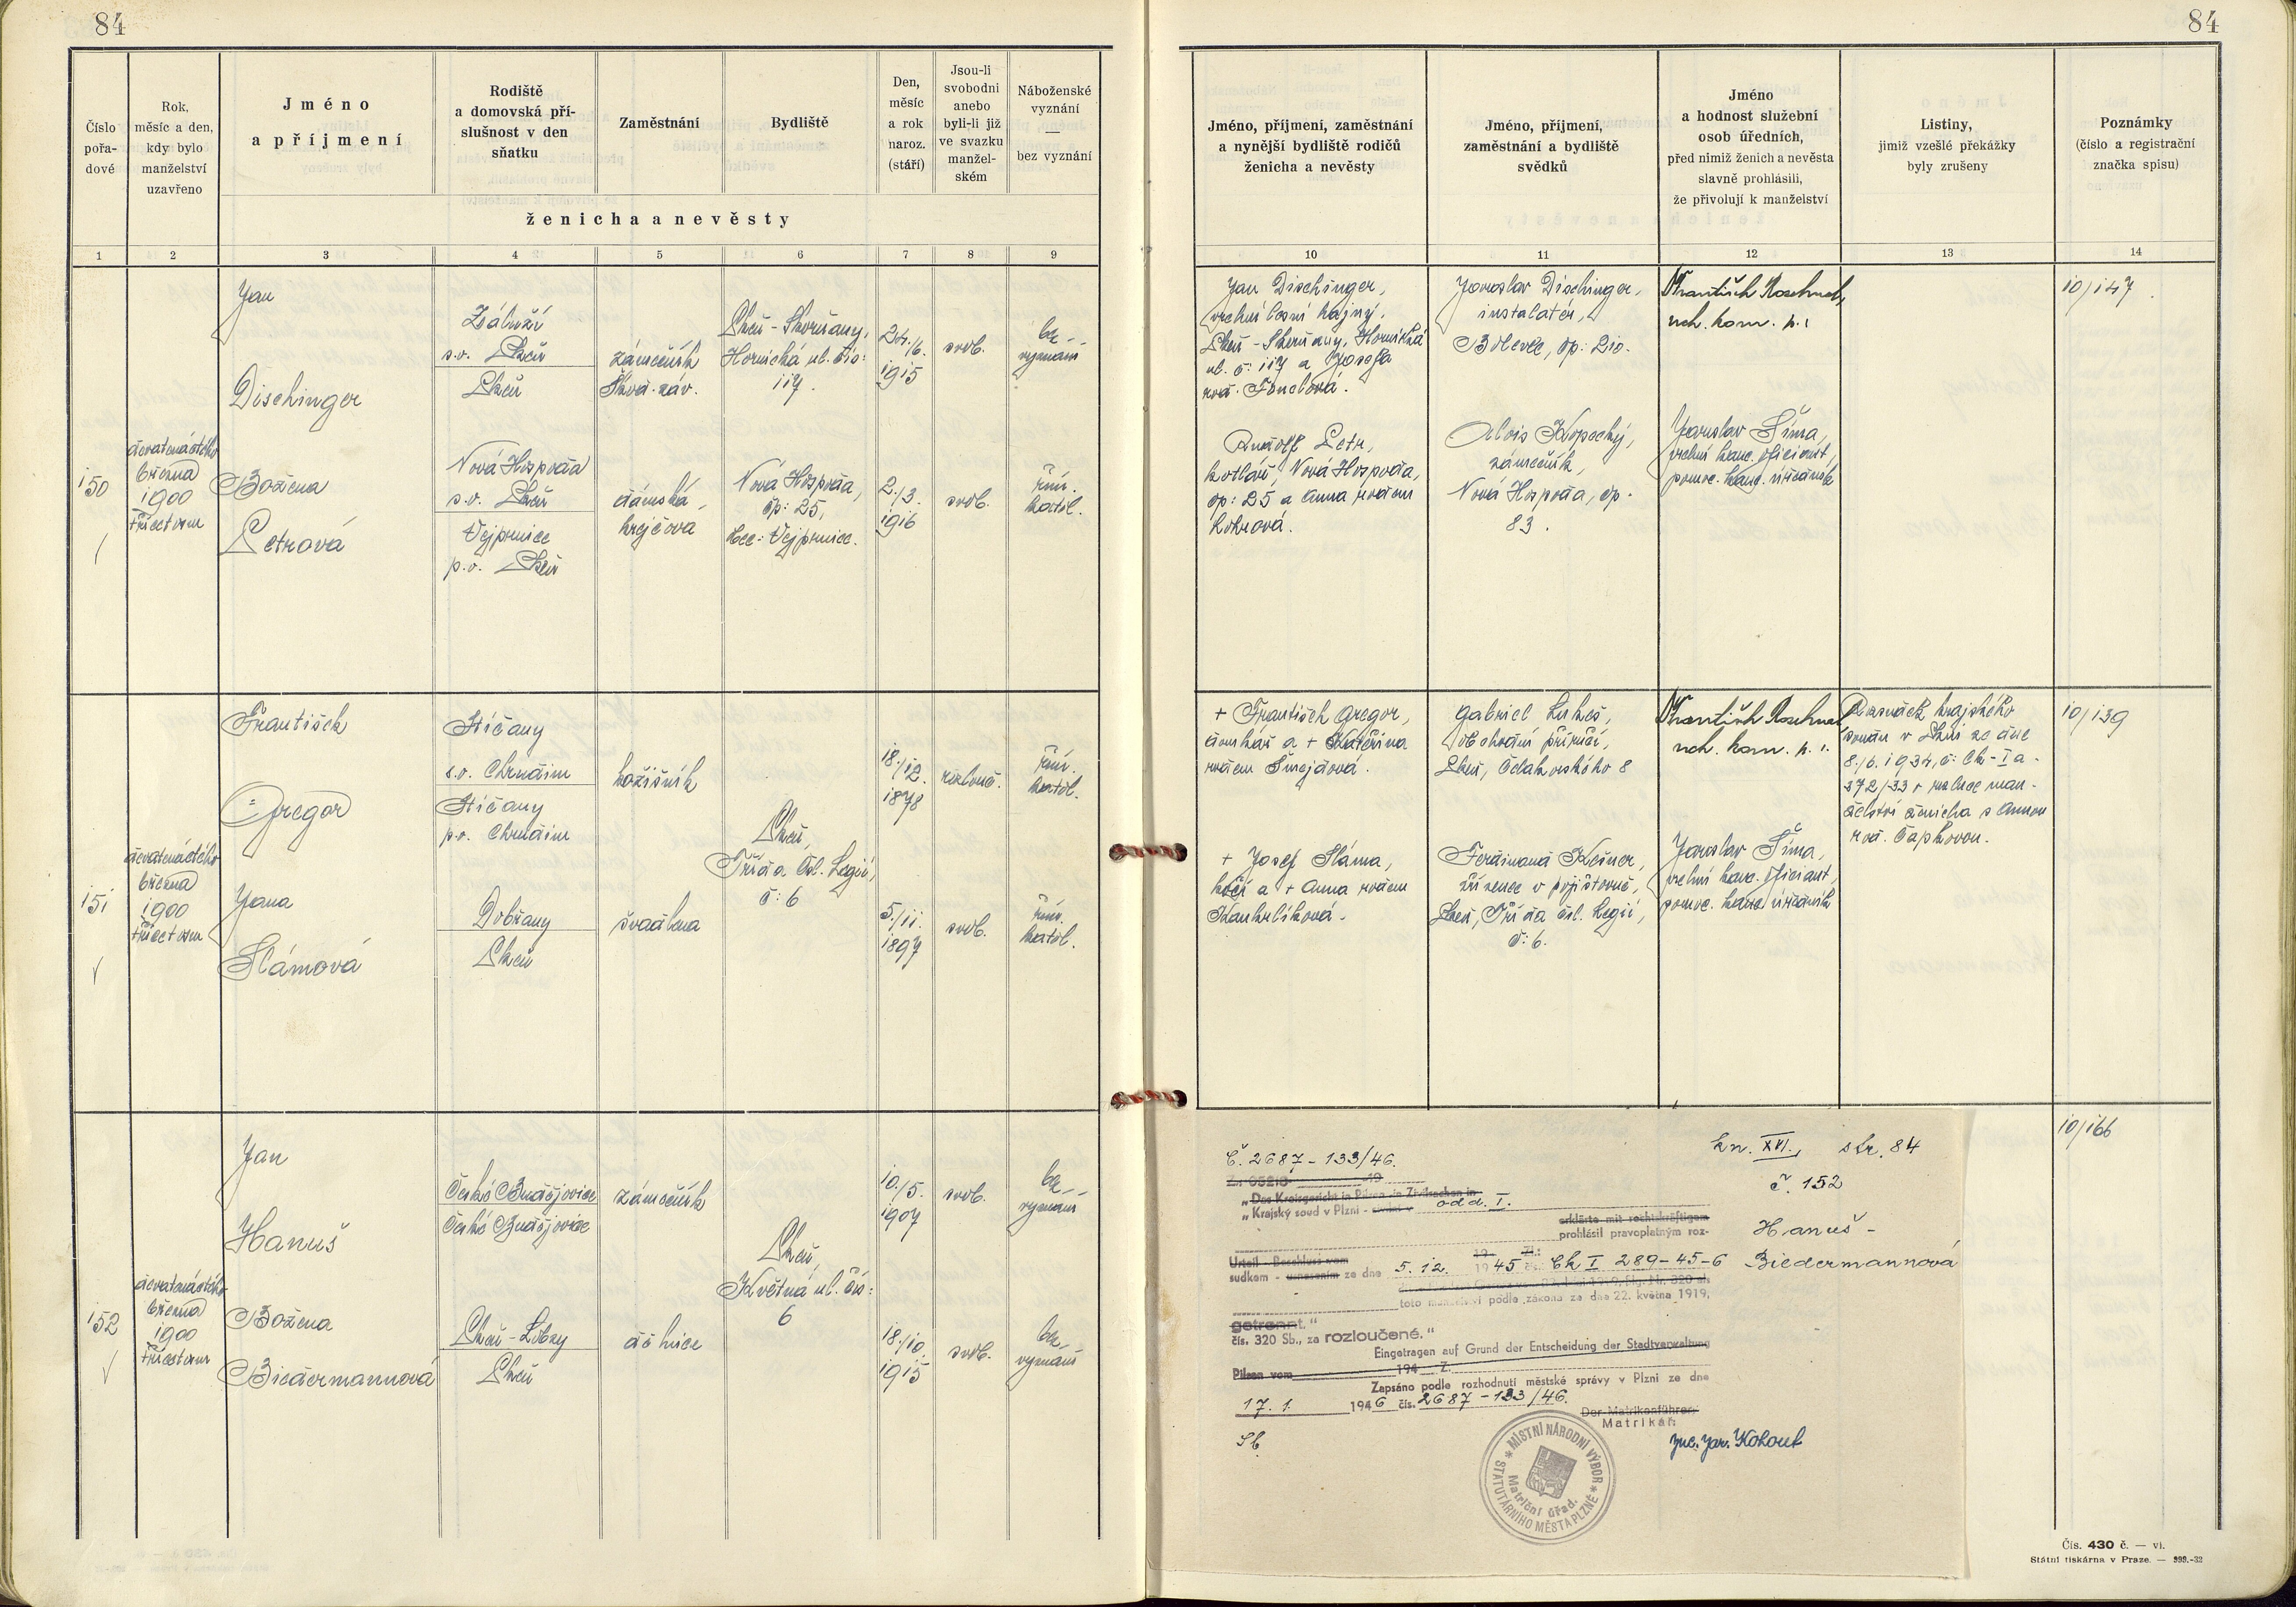 84
84
Číslo
pořa-
dové
Rok,
měsíc a den,
kdy bylo
manželství
uzavřeno
Jméno
a příjmení
Rodiště
a domovská pří-
slušnost v den
sňatku
Zaměstnání
Bydliště
Den,
měsíc
a rok
naroz.
(stáří)
Jsou-li
svobodni
anebo
byli-li již
ve svazku
manžel-
ském
Náboženské
vyznání
—
bez vyznání
ženicha a nevěsty
Jméno, příjmení, zaměstnání
a nynější bydliště rodičů
ženicha a nevěsty
Jméno, příjmení,
zaměstnání a bydliště
svědků
Jméno
a hodnost služební
osob úředních,
před nimiž ženich a nevěsta
slavně prohlásili,
že přivolují k manželství
Listiny,
jimiž vzešlé překážky
byly zrušeny
Poznámky
(číslo a registrační
značka spisu)
1 2 3 4 5 6 7 8 9 10 11 12 13 14
150
devatenáctého
března
1900
třicetosm
Jan
Dischinger
Záluží
s.o. Plzeň
Plzeň
zámečník
Škod. záv.
Plzeň-Skvrňany,
Hornická ul. čís:
117.
24./6.
1915
svob.
bez
vyznání
Božena
Petrová
Nová Hospoda
s.o. Plzeň
Vejprnice
p.o. Plzeň
dámská
krejčová
Nová Hospoda,
čp: 25,
obec: Vejprnice.
2./3.
1916
svob.
řím.
katol.
Jan Dischinger,
vrchní lesní hajný,
Plzeň-Skvrňany, Hornická
ul. č: 117 a Josefa
rod.
Rudolf Petr,
kotlář, Nová Hospoda,
čp: 25 a Anna rodem
Jaroslav Dischinger,
instalatér,
Bolevec, čp: 210.
Alois Kopecký,
zámečník,
Nová Hospoda, čp.
83.
František
Jaroslav Šíma,
vrchní kanc. oficiant,
pomoc. kanc. úředník
10/147
151
devatenáctého
března
1900
třicetosm
František
Gregor
Stíčany
s.o. Chrudim
Stíčany
p.o. Chrudim
kožišník
Plzeň,
Třída čsl. Legií,
č: 6
18./12.
1878
rozlouč.
řím.
katol.
Jana
Slámová
Dobřany
Plzeň
švadlena
5./11.
1897
svob.
řím.
katol.
+ František Gregor,
domkář a + Kateřina
rodem Šmejdová.
+ Josef Sláma,
kočí a + Anna rodem
Gabriel Lukeš,
obchodní příručí,
Plzeň, Čelakovského 8
Ferdinand Kešner,
zřízenec v pojišťovně,
Plzeň, Třída čsl. Legií,
č: 6.
František
Jaroslav Šíma,
vrchní kanc. oficiant,
pomoc. kanc. úředník
Rozsudek krajského
soudu v Plzni ze dne
8./6. 1934, č: Ck-Ia-
372/33 o rozluce man-
želství ženicha s Annou
rod. Čapkovou.
10/139
152
devatenáctého
března
1900
třicetosm
Jan
Hanuš
České Budějovice
České Budějovice
zámečník
Plzeň,
Květná ul. čís:
6
10./5.
1907
svob.
bez
vyznání
Božena
Biedermannová
Plzeň-Lobzy
Plzeň
dělnice
18./10.
1915
svob.
bez
vyznání
10/166
Č. 2687-133/46.
kn. XVI., str. 84
č. 152
Hanuš -
Biedermannová
„Das Kreisgericht in Pilsen in Zivilsachen in
„Krajský soud v Plzni - odd. I.
erklärte mit rechtskräftigem
prohlásil pravoplatným roz-
Urteil - Beschluss vom
sudkem - usnesením ze dne 5. 12. 1945 č. Ck I 289-45-6
toto manželství podle zákona ze dne 22. května 1919,
getrennt."
čís. 320 Sb., za rozloučené."
Eingetragen auf Grund der Entscheidung der Stadtverwaltung
Pilsen vom 194 Z.
Zapsáno podle rozhodnutí městské správy v Plzni ze dne
17. 1. 1946 čís. 2687-133/46.
Der Matrikenführer:
Matrikář:
Jar. Kohout
MÍSTNÍ NÁRODNÍ VÝBOR
STATUTÁRNÍHO MĚSTA PLZNĚ
Matriční úřad.
Čís. 430 č. — vi.
Státní tiskárna v Praze. — 999.-32